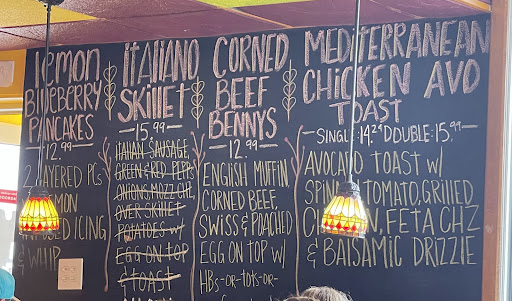 lemon
BluEbERRY
PANCAKES
12.99
2 LAYERED PCs
LEMON
INFUSED ICING
& WHIP
iTALiANO
SKillET
15.99
ITALIAN SAUSAGE,
GREEN & RED PEPP,
ONIONS, MOZZ CHZ,
OVER SKILLET
POTATOES W/
EGG ON TOP
& TOAST
CORNED
BEEF
BENNYS
12.99
ENGlISH MUFFIN,
CORNED BEEF,
SWISS & POACHED
EGG ON TOP W/
HBs-OR-TOTS-OR-
MEDITERRANEAN
CHICKEN AVO
TOAST
SINGLE: 14.24 DOUBLE: 15.99
AVOCADO TOAST W/
TOMATO, GRILLED
FETA CHZ
& BALSAMIC DRIZZlE